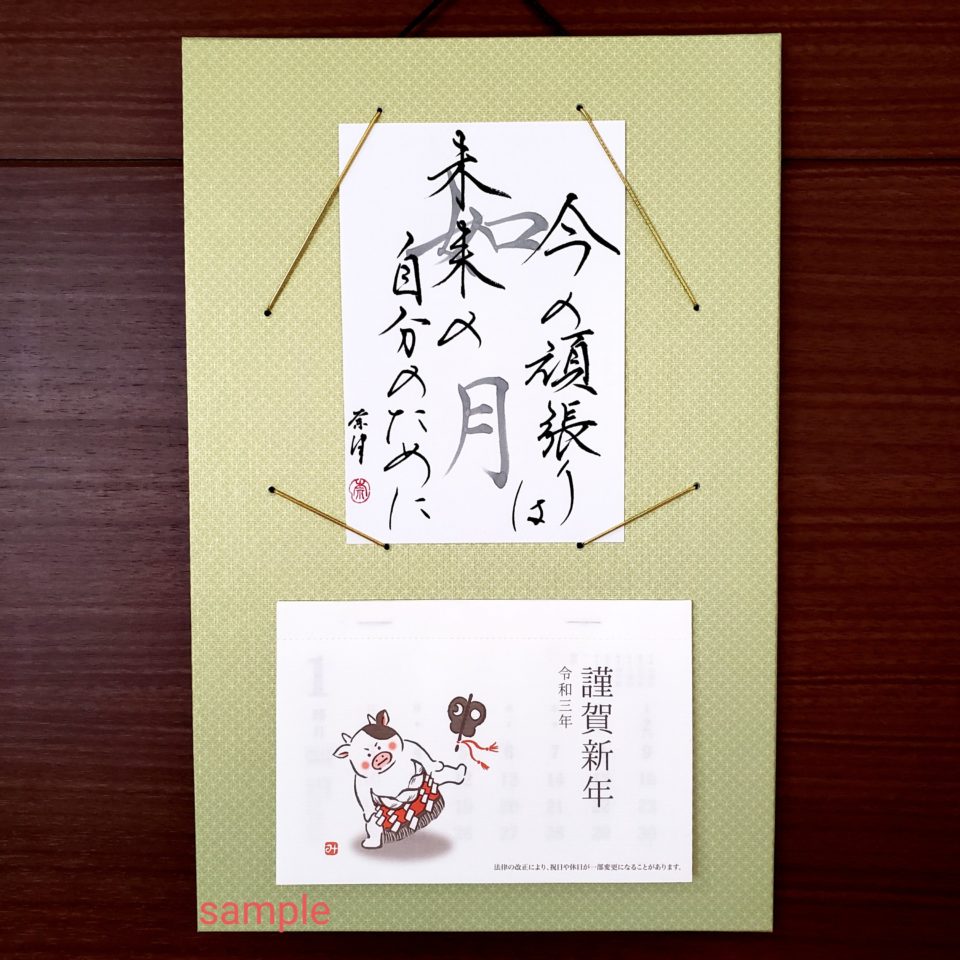 今の頑張りは
未来の
自分のために
如月
奈月
奈
謹賀新年
令和三年
み
法律の改正により、祝日や休日が一部変更になることがあります。
sample